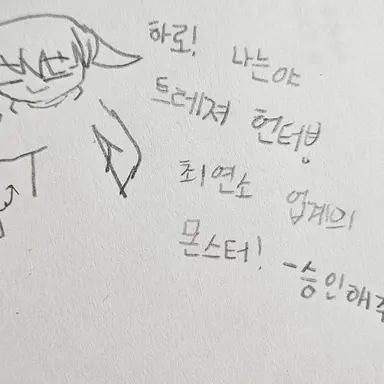 하로! 나는야
트레져 헌터빙
최연소 업계의
몬스터! -승인해주